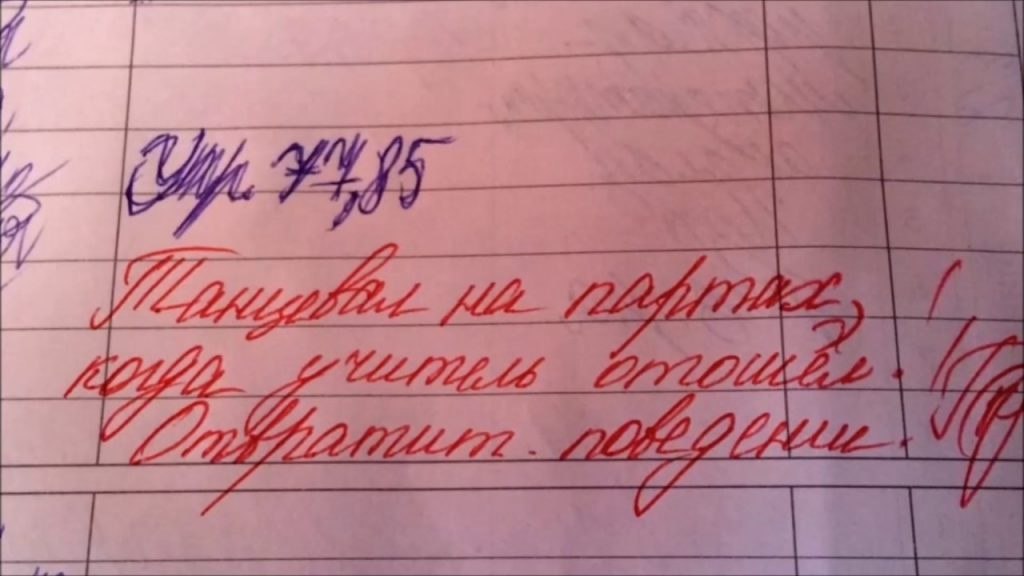 Упр. 77,85
Танцевал на партах,
когда учитель отошёл.
Отвратит. поведение.